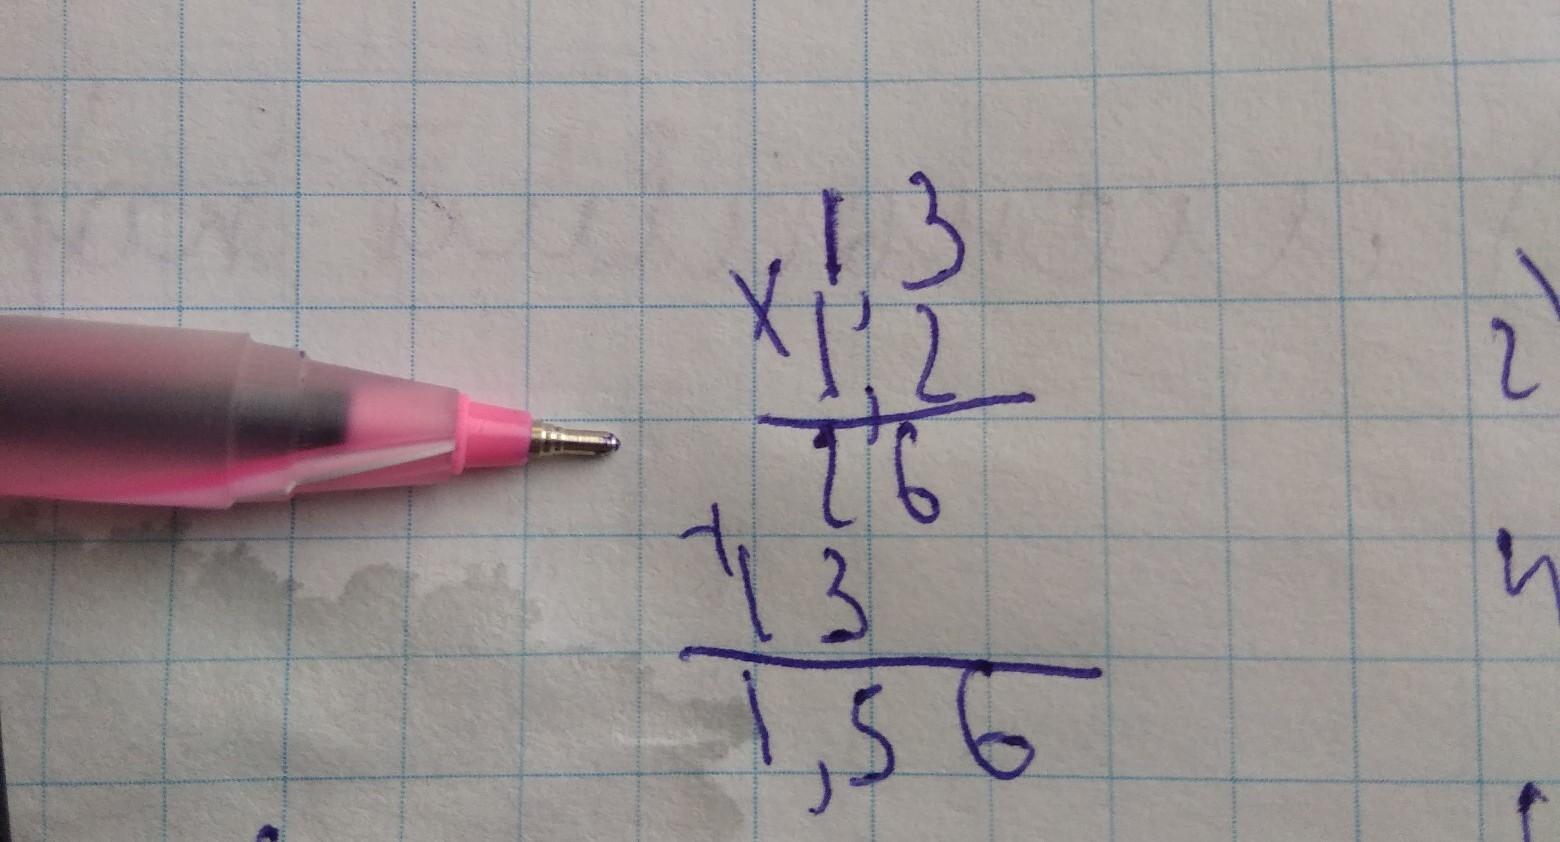 1,3
x 1,2
26
+ 13
1,56
2